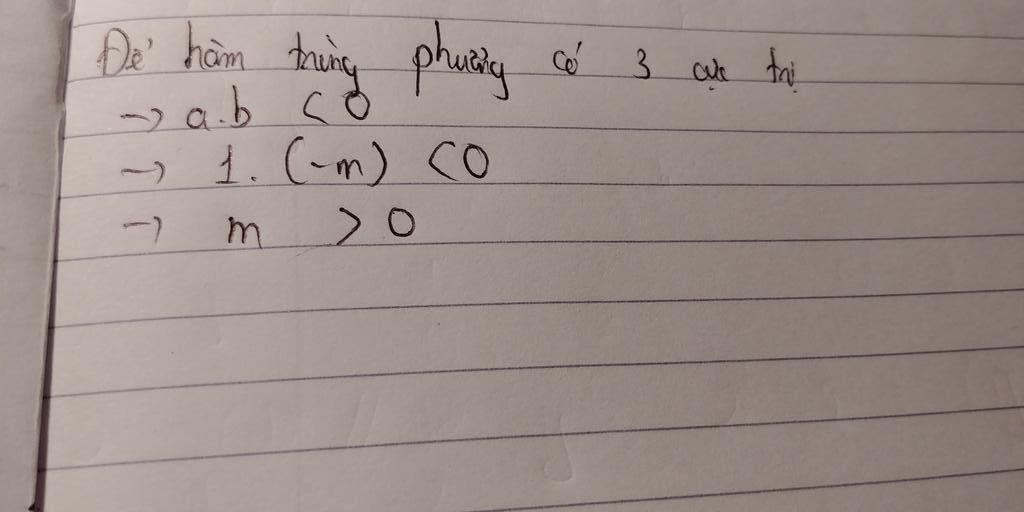 Để hàm trùng phương có 3 cực trị
→ a.b < 0
→ 1. (-m) < 0
→ m > 0